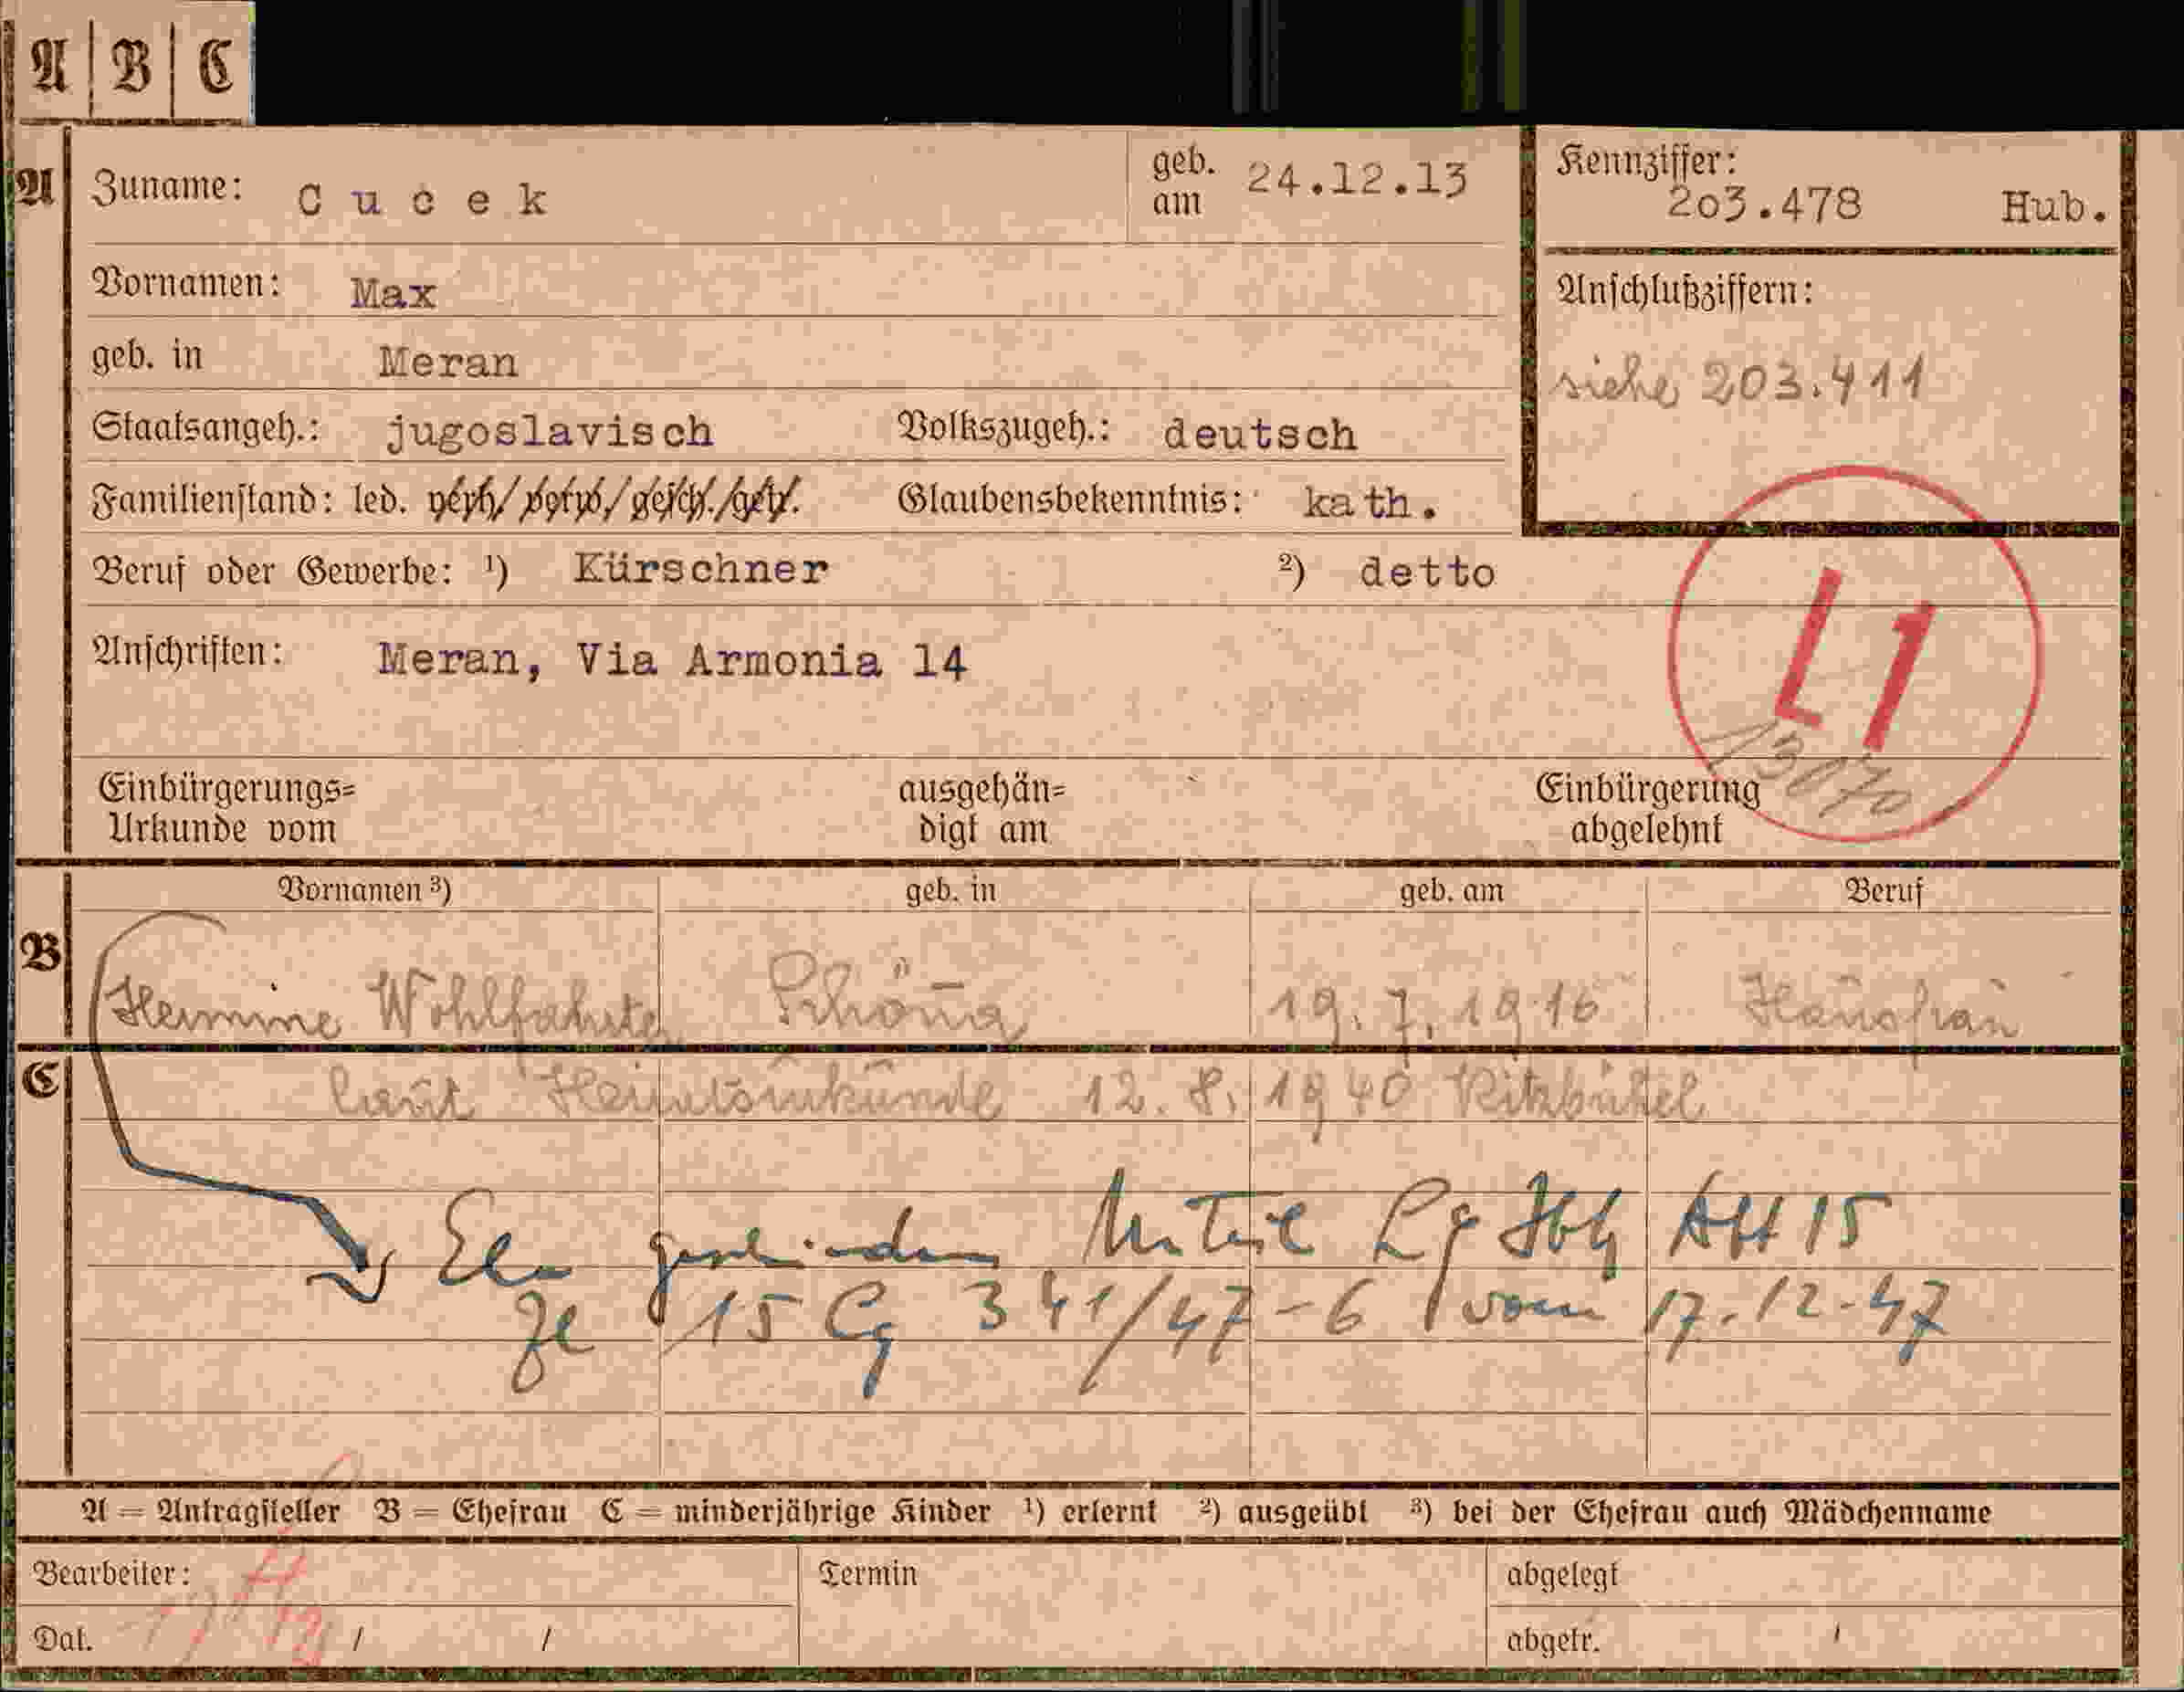 A | B | C
A
Zuname: Cucek
geb. am 24.12.13
Kennziffer: 203.478 Hub.
Vornamen: Max
Anschlußziffern:
geb. in Meran
siehe 203.411
Staatsangeh.: jugoslavisch Volkszugeh.: deutsch
Familienstand: led. verh/ verw/ gesch./get. Glaubensbekenntnis: kath.
Beruf oder Gewerbe: ¹) Kürschner ²) detto
L1
Anschriften: Meran, Via Armonia 14
13070
Einbürgerungs=
Urkunde vom
ausgehän=
digt am
Einbürgerung
abgelehnt
Vornamen ³) geb. in geb. am Beruf
B
Wohlfahrt 19.7.1916 Hausfrau
C
laut Heiratsurkunde 12.8.1940 Kitzbühel
Ehe geschieden Urteil Lg Ibk Abt 15
15 Cg 341/47-6 vom 17.12.47
A = Antragsteller B = Ehefrau C = minderjährige Kinder ¹) erlernt ²) ausgeübt ³) bei der Ehefrau auch Mädchenname
Bearbeiter: Termin abgelegt
Dat. / / abgetr. /